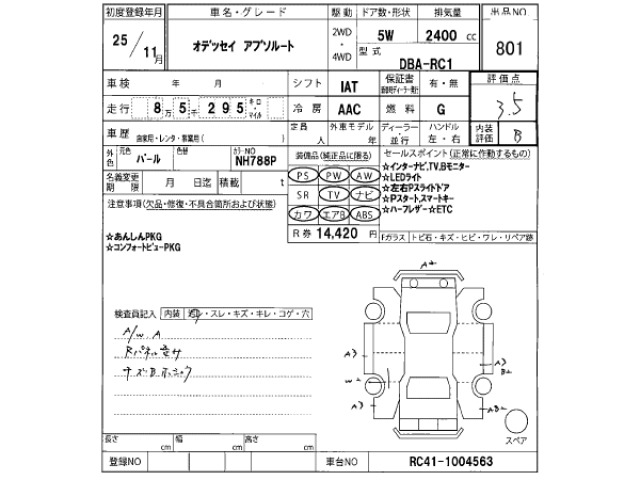 初度登録年月 車名・グレード 駆動 ドア数・形状 排気量 出品NO
25/11月 オデッセイ アブソルート 2WD・4WD 5W 2400 cc 801
型式 DBA-RC1
車検 年 月 シフト IAT 保証書 有・無 評価点
走行 8万5千295 キロ・マイル 冷房 AAC 燃料 G 3.5
車歴 自家用・レンタ・事業用( ) 定員 人 外車モデル 年 ディーラー・並行 ハンドル 左・右 内装評価 B
外色 元色 パール 色替 カラーNO NH788P 装備品(純正品に限る) セールスポイント(正常に作動するもの)
名義変更期限 月 日迄 積載 t PS PW AW ☆インターナビ,TV,Bモニター
☆LEDライト
注意事項(欠品・修復・不具合箇所および状態) SR TV ナビ ☆左右Pスライドドア
☆Pスタート,スマートキー
カワ エアB ABS ☆ハーフレザー☆ETC
R券 14,420 円 Fガラス トビ石・キズ・ヒビ・ワレ・リペア跡
☆あんしんPKG
☆コンフォートビューPKG
A2
検査員記入 内装 ・スレ・キズ・キレ・コゲ・穴
A/W A
A3 A3
B2
W2
A3 AB2
スペア
長さ cm 幅 cm 高さ cm
登録NO 車台NO RC41-1004563